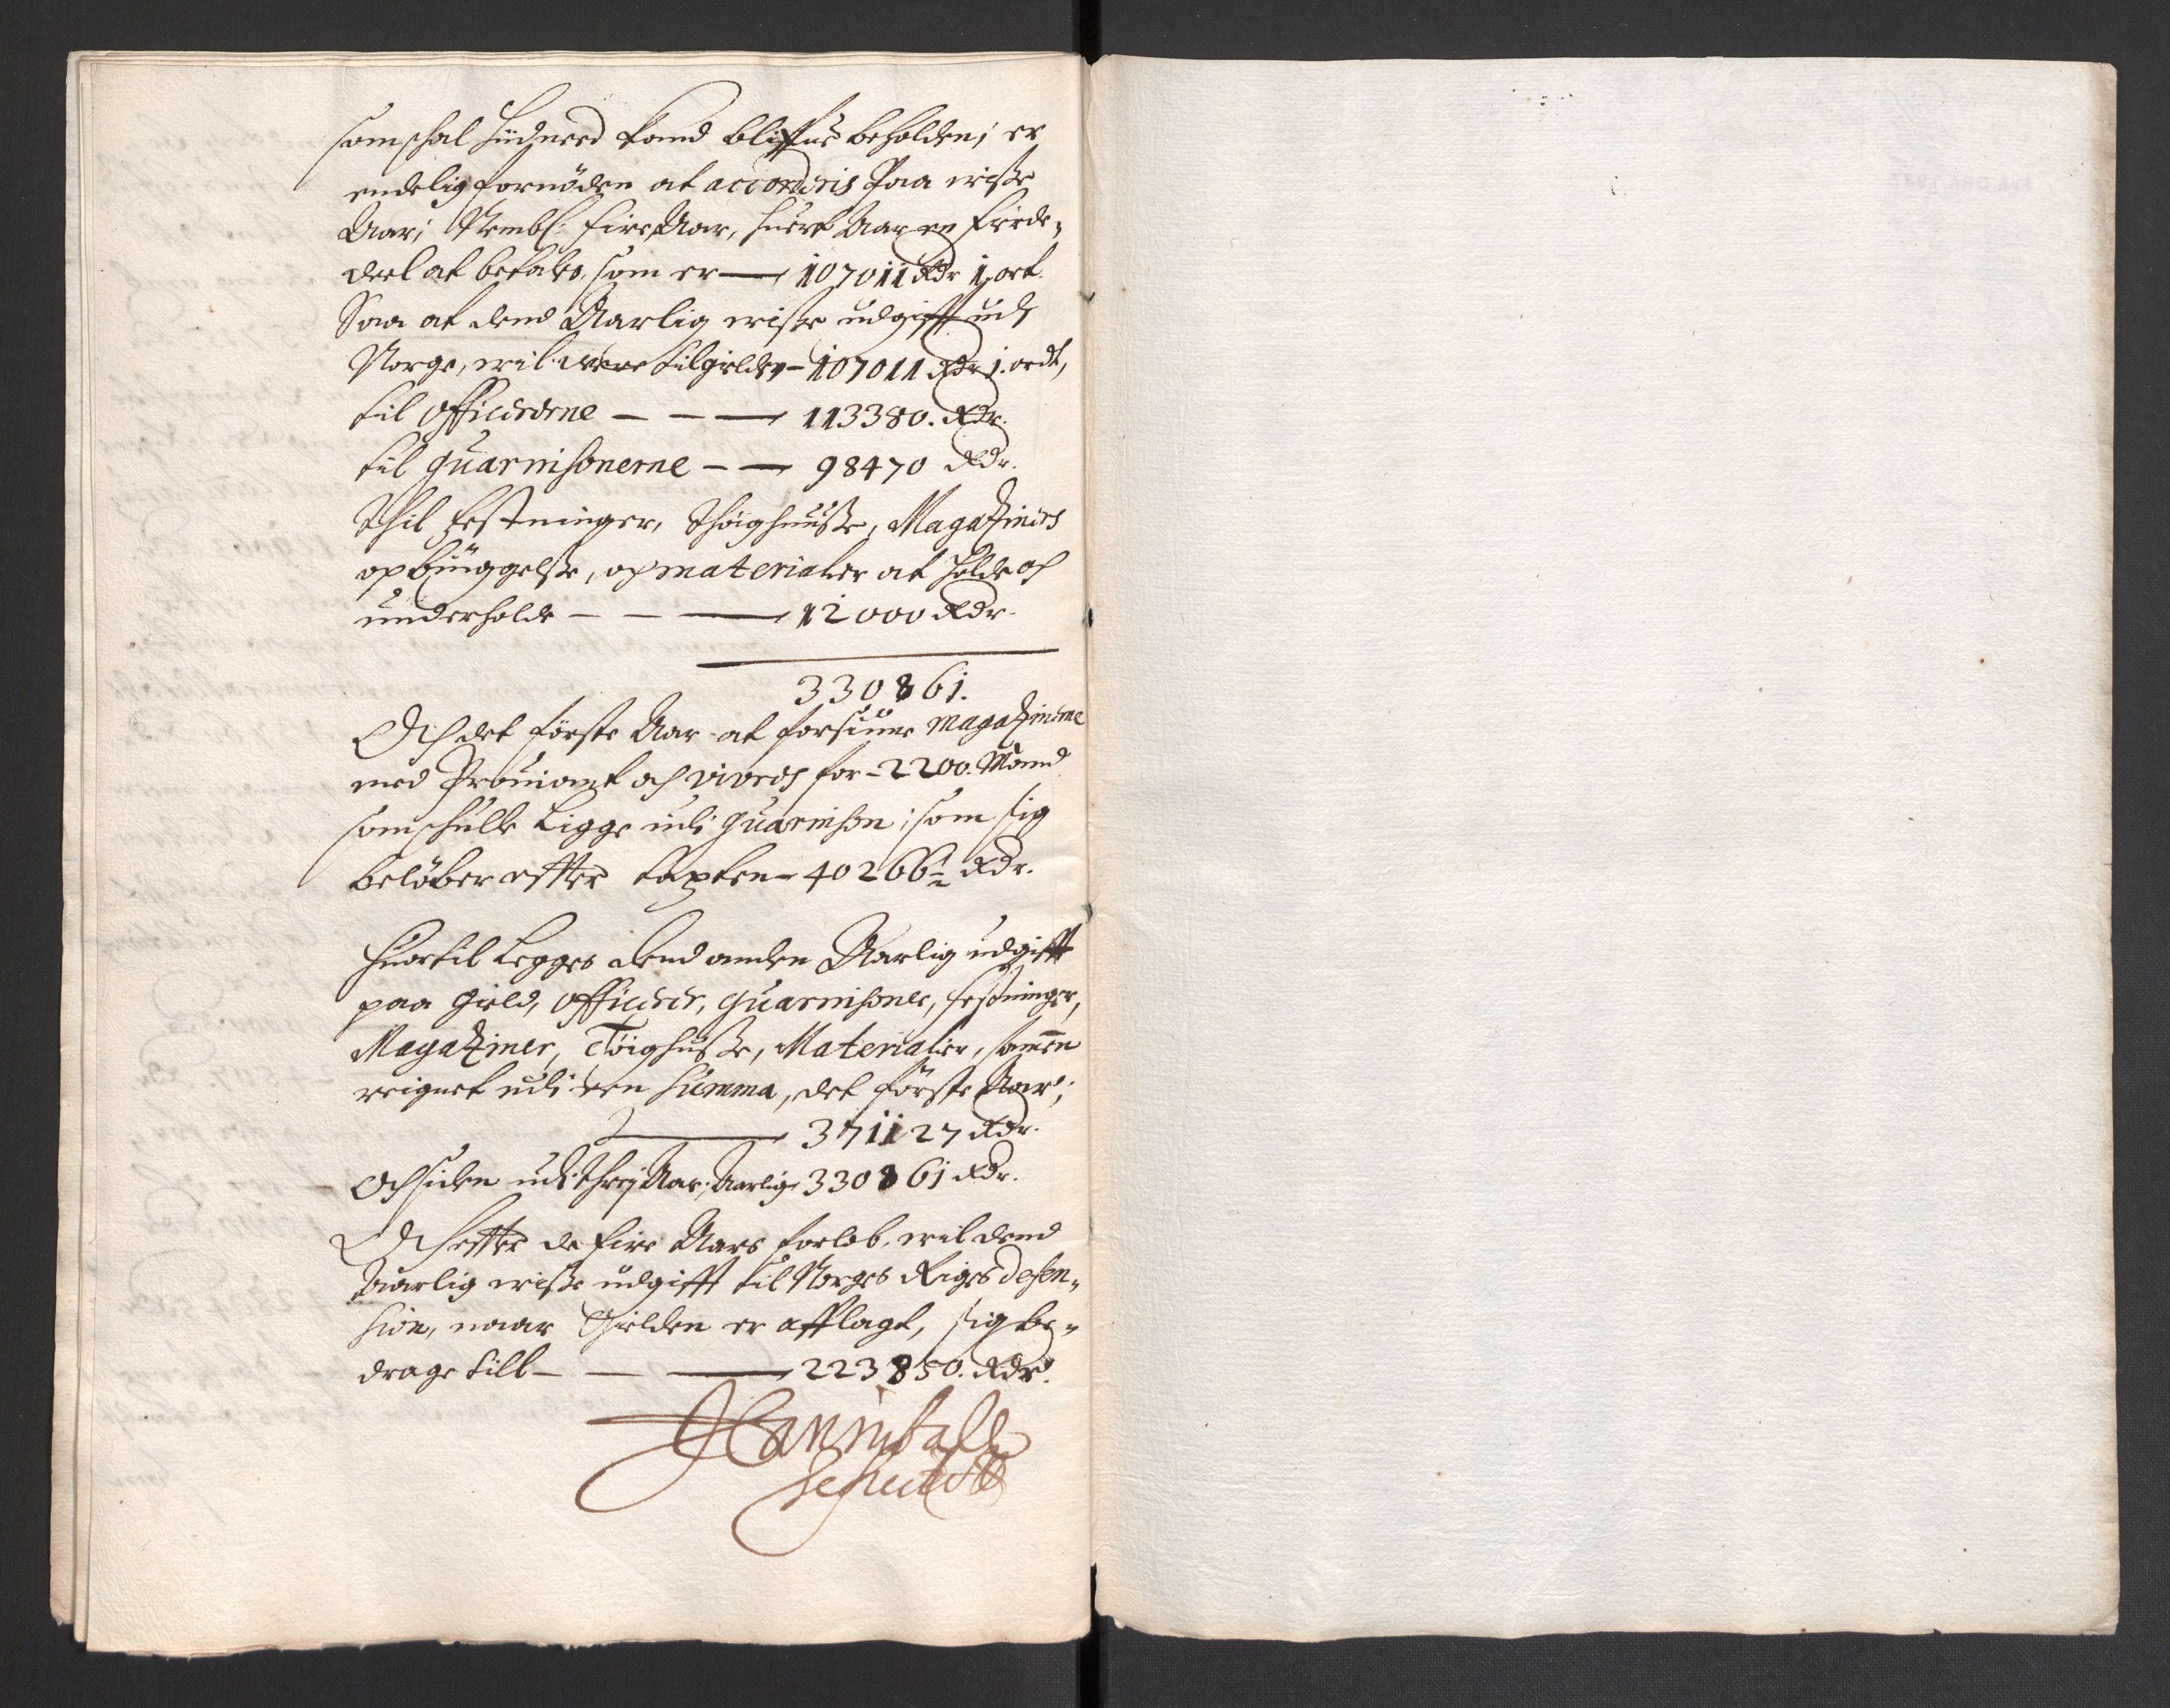 som schal hid need kand bliffue beholden; er
endelig fornöden at accorderis Paa wiße
Aar; Nembl: fire Aar, huert Aar en fierde-
deel at betales, som er — 107011 Rdr 1. ort.
Saa at dend Aarlig wiße udgifft udi
Norge, wil were til gielden – 107011 Rdr 1. ordt,
til Officererne — — — 113380. Rdr.
til guarnisonerne — — 98470 Rdr.
Thil festninger, Thöighuuße, Magatziners
opbÿggelße, og materialier at holde och
underholde — — — 12000 Rdr.
330861.
Och det förste Aar at forsiune magatzinerne
med Prouiant och vivers for – 2200. Mand
som schulle ligge udi guarnison; som sig
belöber effter taxten – 40266½ Rdr.
Huortil legges dend anden Aarlig udgifft
paa Gield, Officerer, guarnisoner, festninger,
Magatziner, Töighuße, Materialier, samen
reignet udi een Summa, det förste Aar;
— 371127 Rdr.
Och siden udi threj Aar; Aarlig 330861 Rdr.
Och effter de fire Aars forlöb, wil dend
Aarlig wiße udgifft til Norges Riges defen-
sion, naar Gielden er afflagt, sig be-
drage till — — — 223850. Rdr.
Hanniball
Sehested